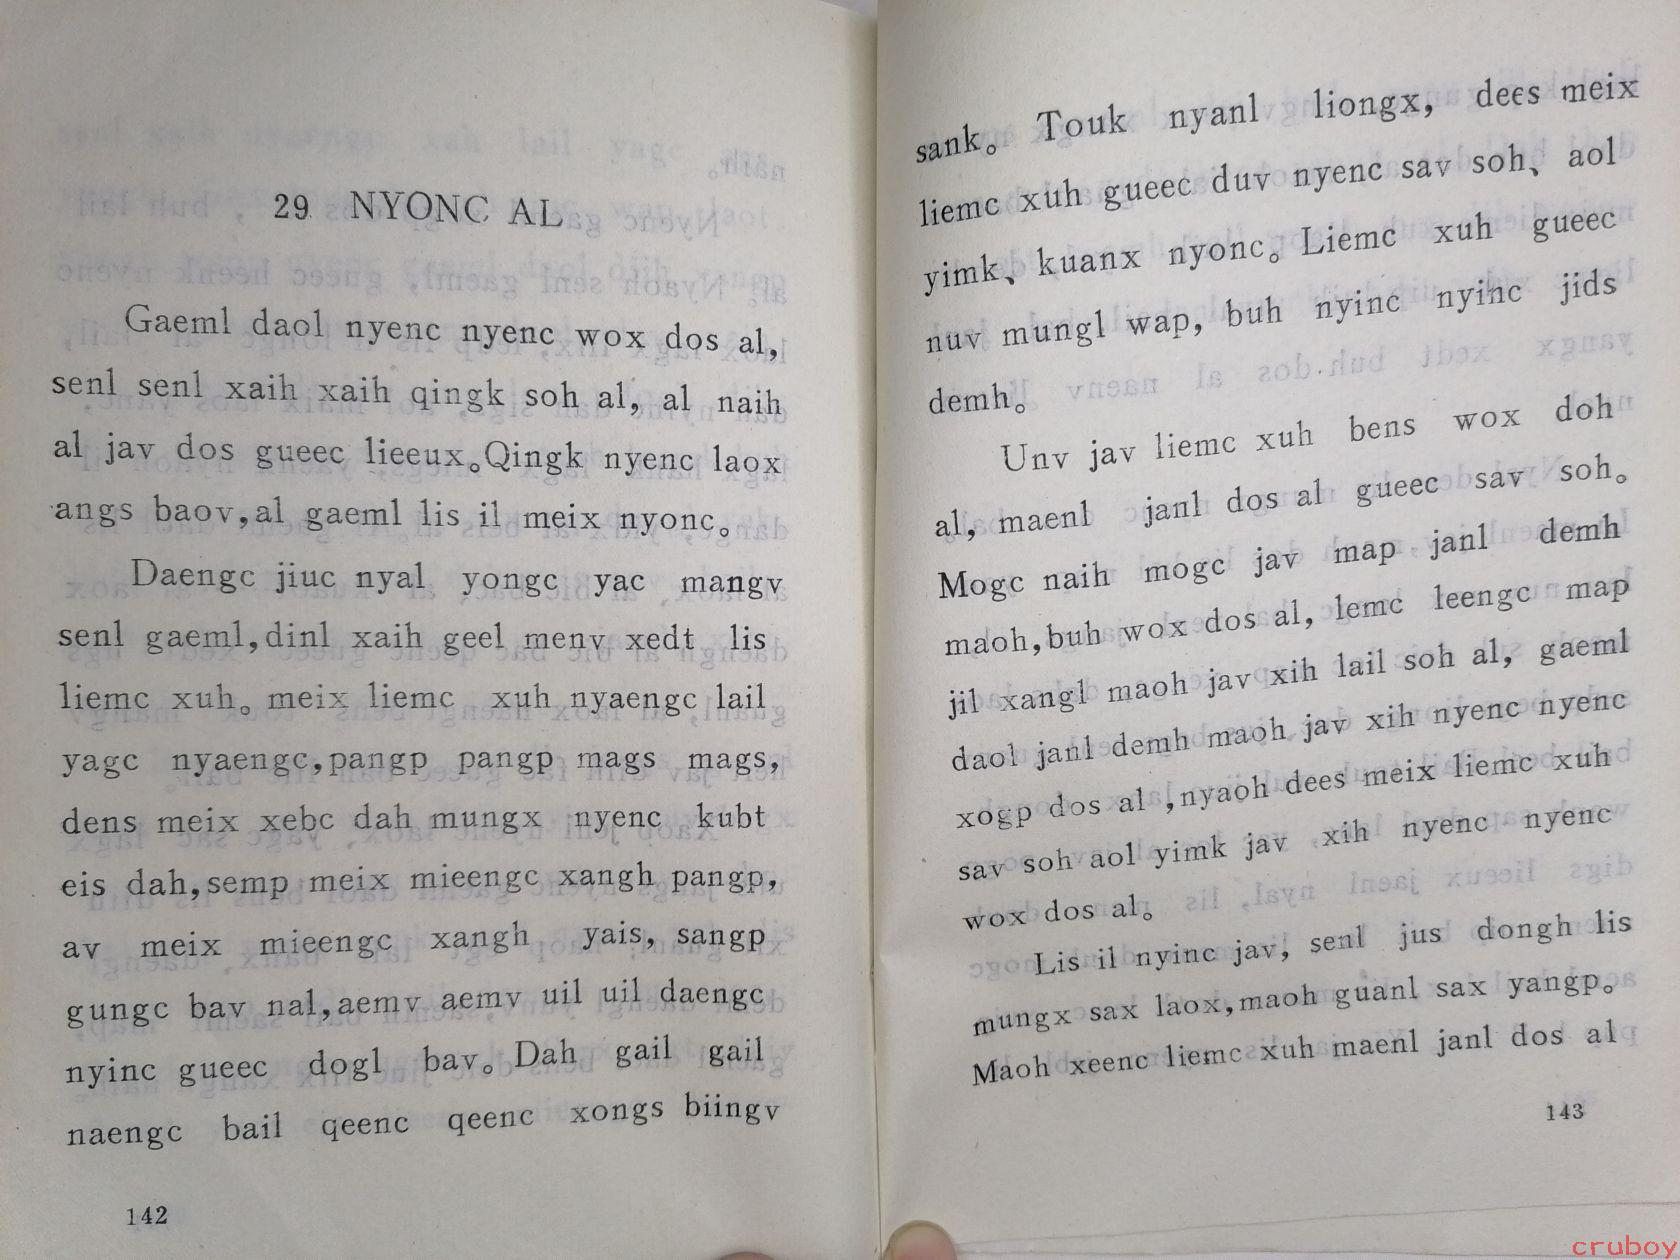 29 NYONC AL
Gaeml daol nyenc nyenc wox dos al,
senl senl xaih xaih qingk soh al, al naih
al jav dos gueec lieeux。Qingk nyenc laox
angs baov,al gaeml lis il meix nyonc。
Daengc jiuc nyal yongc yac mangv
senl gaeml,dinl xaih geel menv xedt lis
liemc xuh。meix liemc xuh nyaengc lail
yagc nyaengc,pangp pangp mags mags,
dens meix xebc dah mungx nyenc kubt
eis dah,semp meix mieengc xangh pangp,
av meix mieengc xangh yais, sangp
gungc bav nal,aemv aemv uil uil daengc
nyinc gueec dogl bav。Dah gail gail
naengc bail qeenc qeenc xongs biingv
142
sank。Touk nyanl liongx, dees meix
liemc xuh gueec duv nyenc sav soh、aol
yimk、kuanx nyonc。Liemc xuh gueec
nuv mungl wap, buh nyinc nyinc jids
demh。
Unv jav liemc xuh bens wox doh
al, maenl janl dos al gueec sav soh。
Mogc naih mogc jav map janl demh
maoh,buh wox dos al, lemc leengc map
jil xangl maoh jav xih lail soh al, gaeml
daol janl demh maoh jav xih nyenc nyenc
xogp dos al ,nyaoh dees meix liemc xuh
sav soh aol yimk jav xih nyenc nyenc
wox dos al。
Lis il nyinc jav, senl jus dongh lis
mungx sax laox,maoh guanl sax yangp。
Maoh xeenc liemc xuh maenl janl dos al
143
cruboy